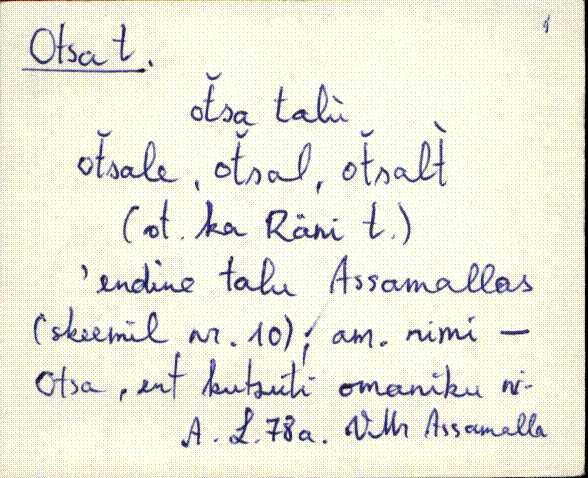 Otsa t.
ŏt̆sa talù
ŏt̆sale, ŏt̆sal, ŏt̆salt̀
(vt. ka Räni t.)
'endine talu Assamallas
(skeemil nr. 10); am. nimi –
Otsa, ent kutsuti omaniku ni-
A. L. 78a. VMr Assamalla